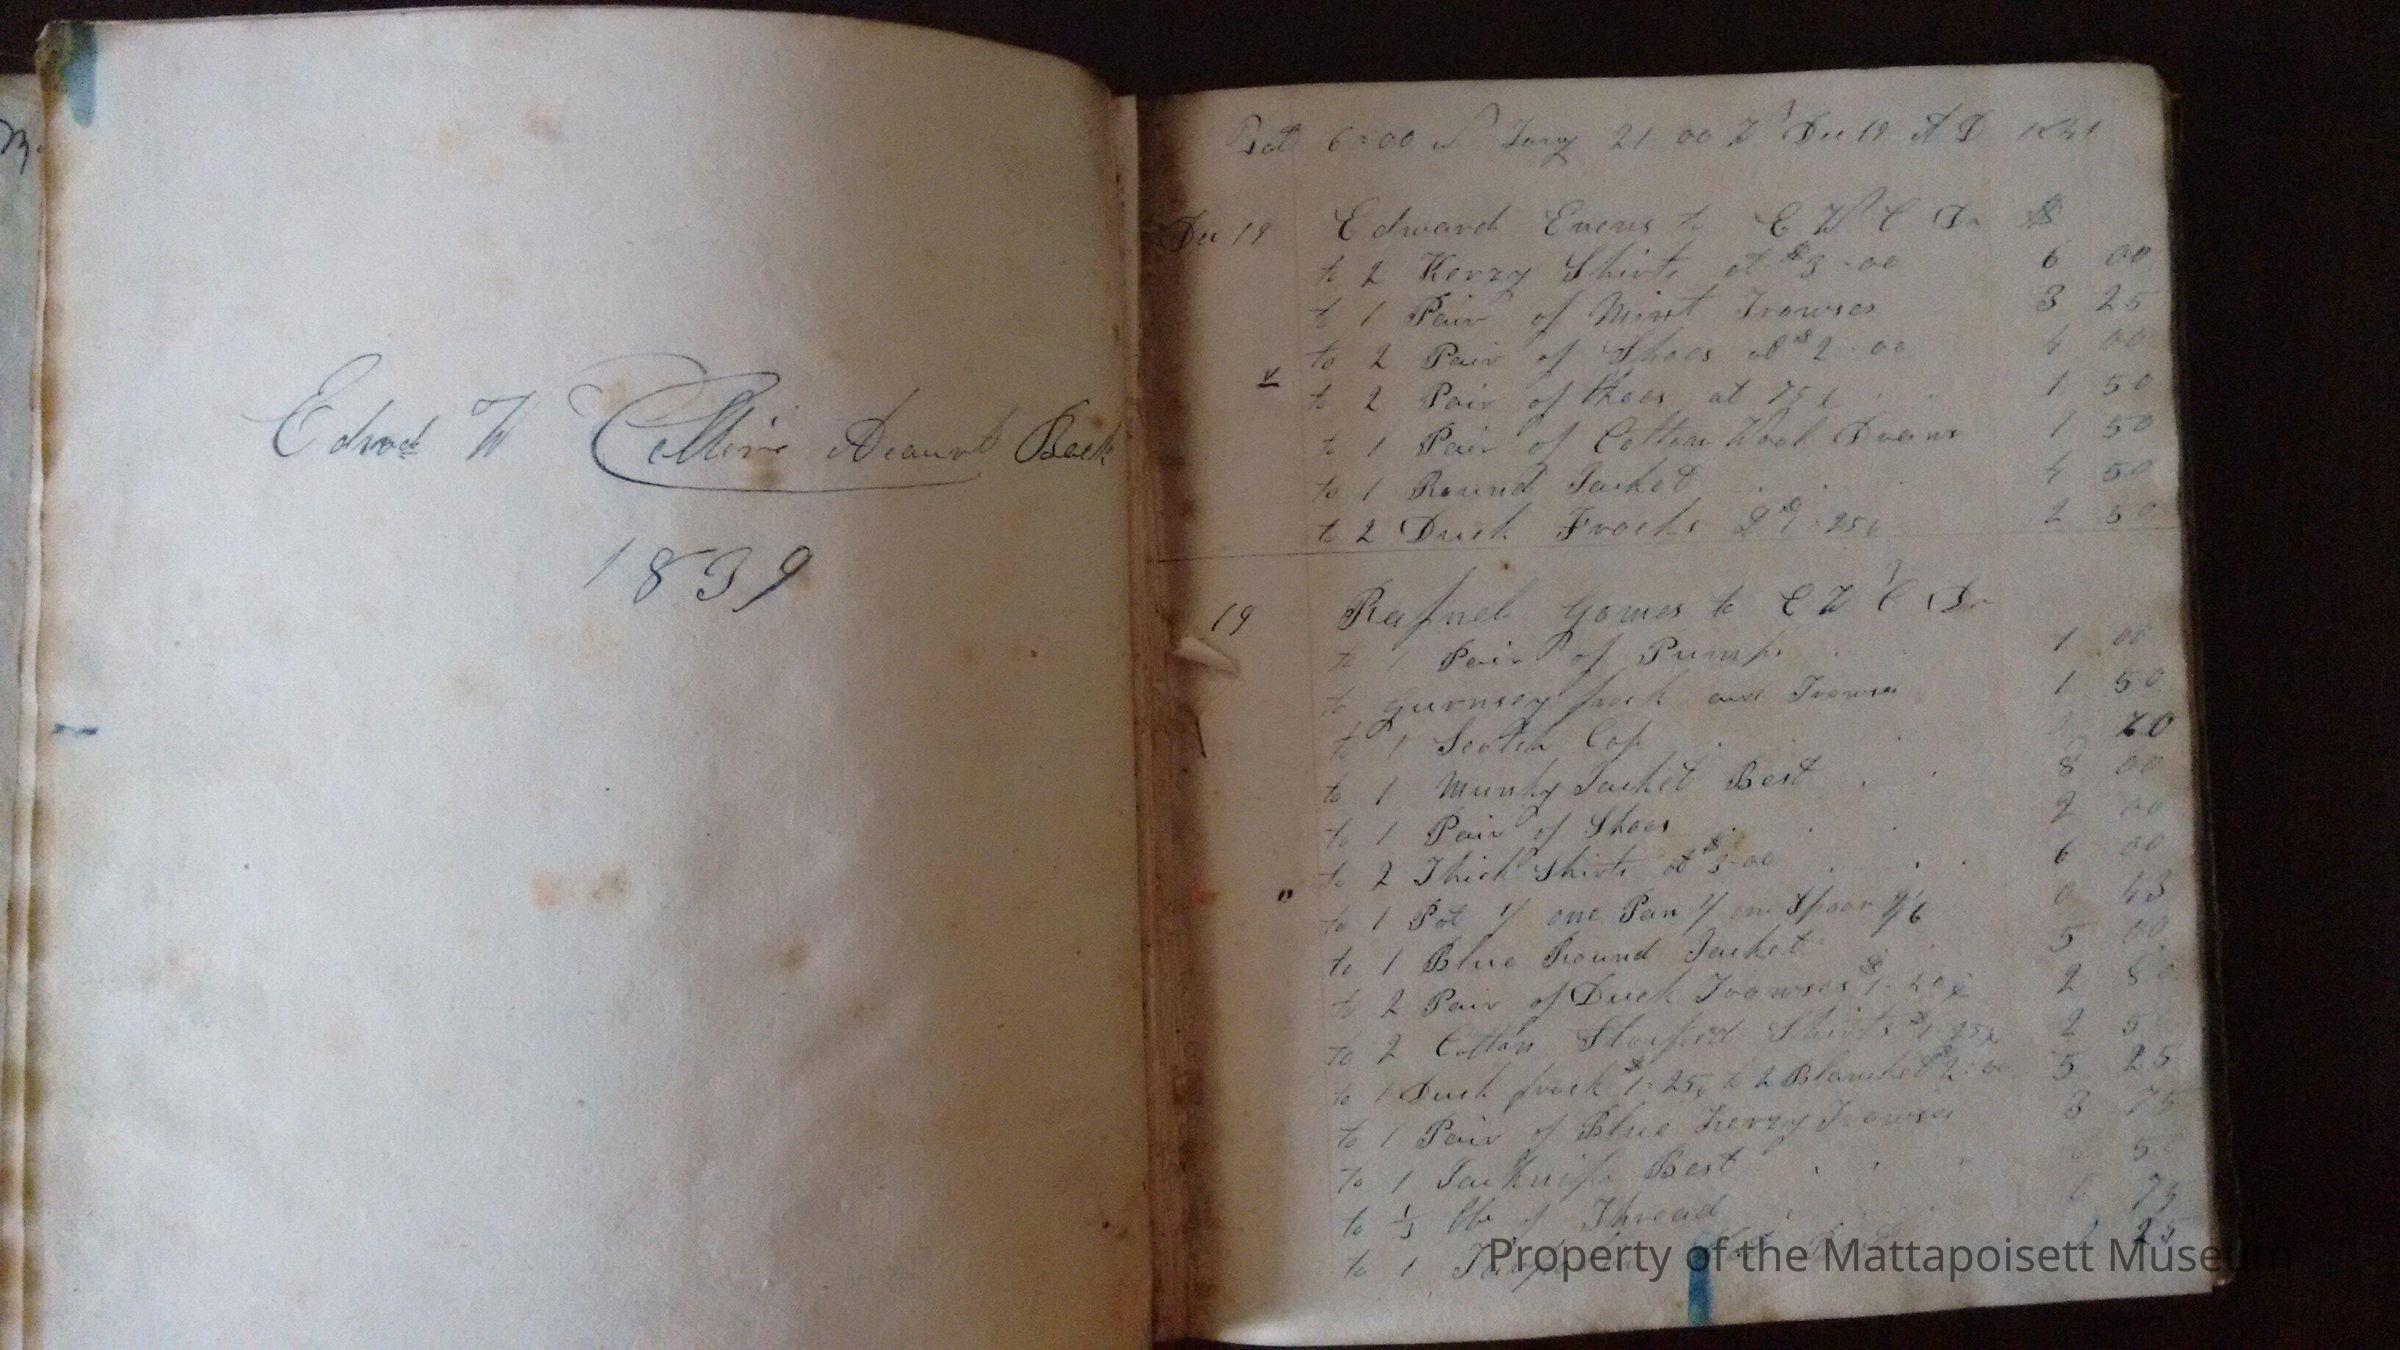 Edwd W Collins Acount Book
1839
Lat 6=00 S Long 21-00 W Dec 19 A D
Dec 19 Edward Evens to E W C Dr $
to 2 Kerzy Shirts at $3-00 6 00
to 1 Pair of Trowses 3 25
to 2 Pair of Shoes at $2-00 4 00
to 2 Pair of at 75¢ 1 50
to 1 Pair of Cotton Wool 1 50
to 1 Round Jacket 4 50
to 2 Duck Frocks $1-25¢ 2 50
19 Rafael Gomes to E W C Dr
to 1 Pair of Pumps 1 00
to Gurnsey frock and Trowses 1 50
to 1 Scotch Cap
to 1 Munky Jacket Best 8 00
to 1 Pair of Shoes 2 00
to 2 Thick Shirts at $3-00 6 00
to 1 Pot 1/ one Pan 1/ one Spoon 0 43
to 1 Blue Round Jacket 5 00
to 2 Pair of Duck Trowses 2 80
to 2 Cotton Shirts $1-25¢ 2 5
to 1 Duck frock $1=25¢ to 2 Blancket $2=00 5 25
to 1 Pair of Blue Kerzy Trowses 3 75
to 1 Jacknife Best 5
to lb of Thread 75
to 1 25
Property of the Mattapoisett Museum